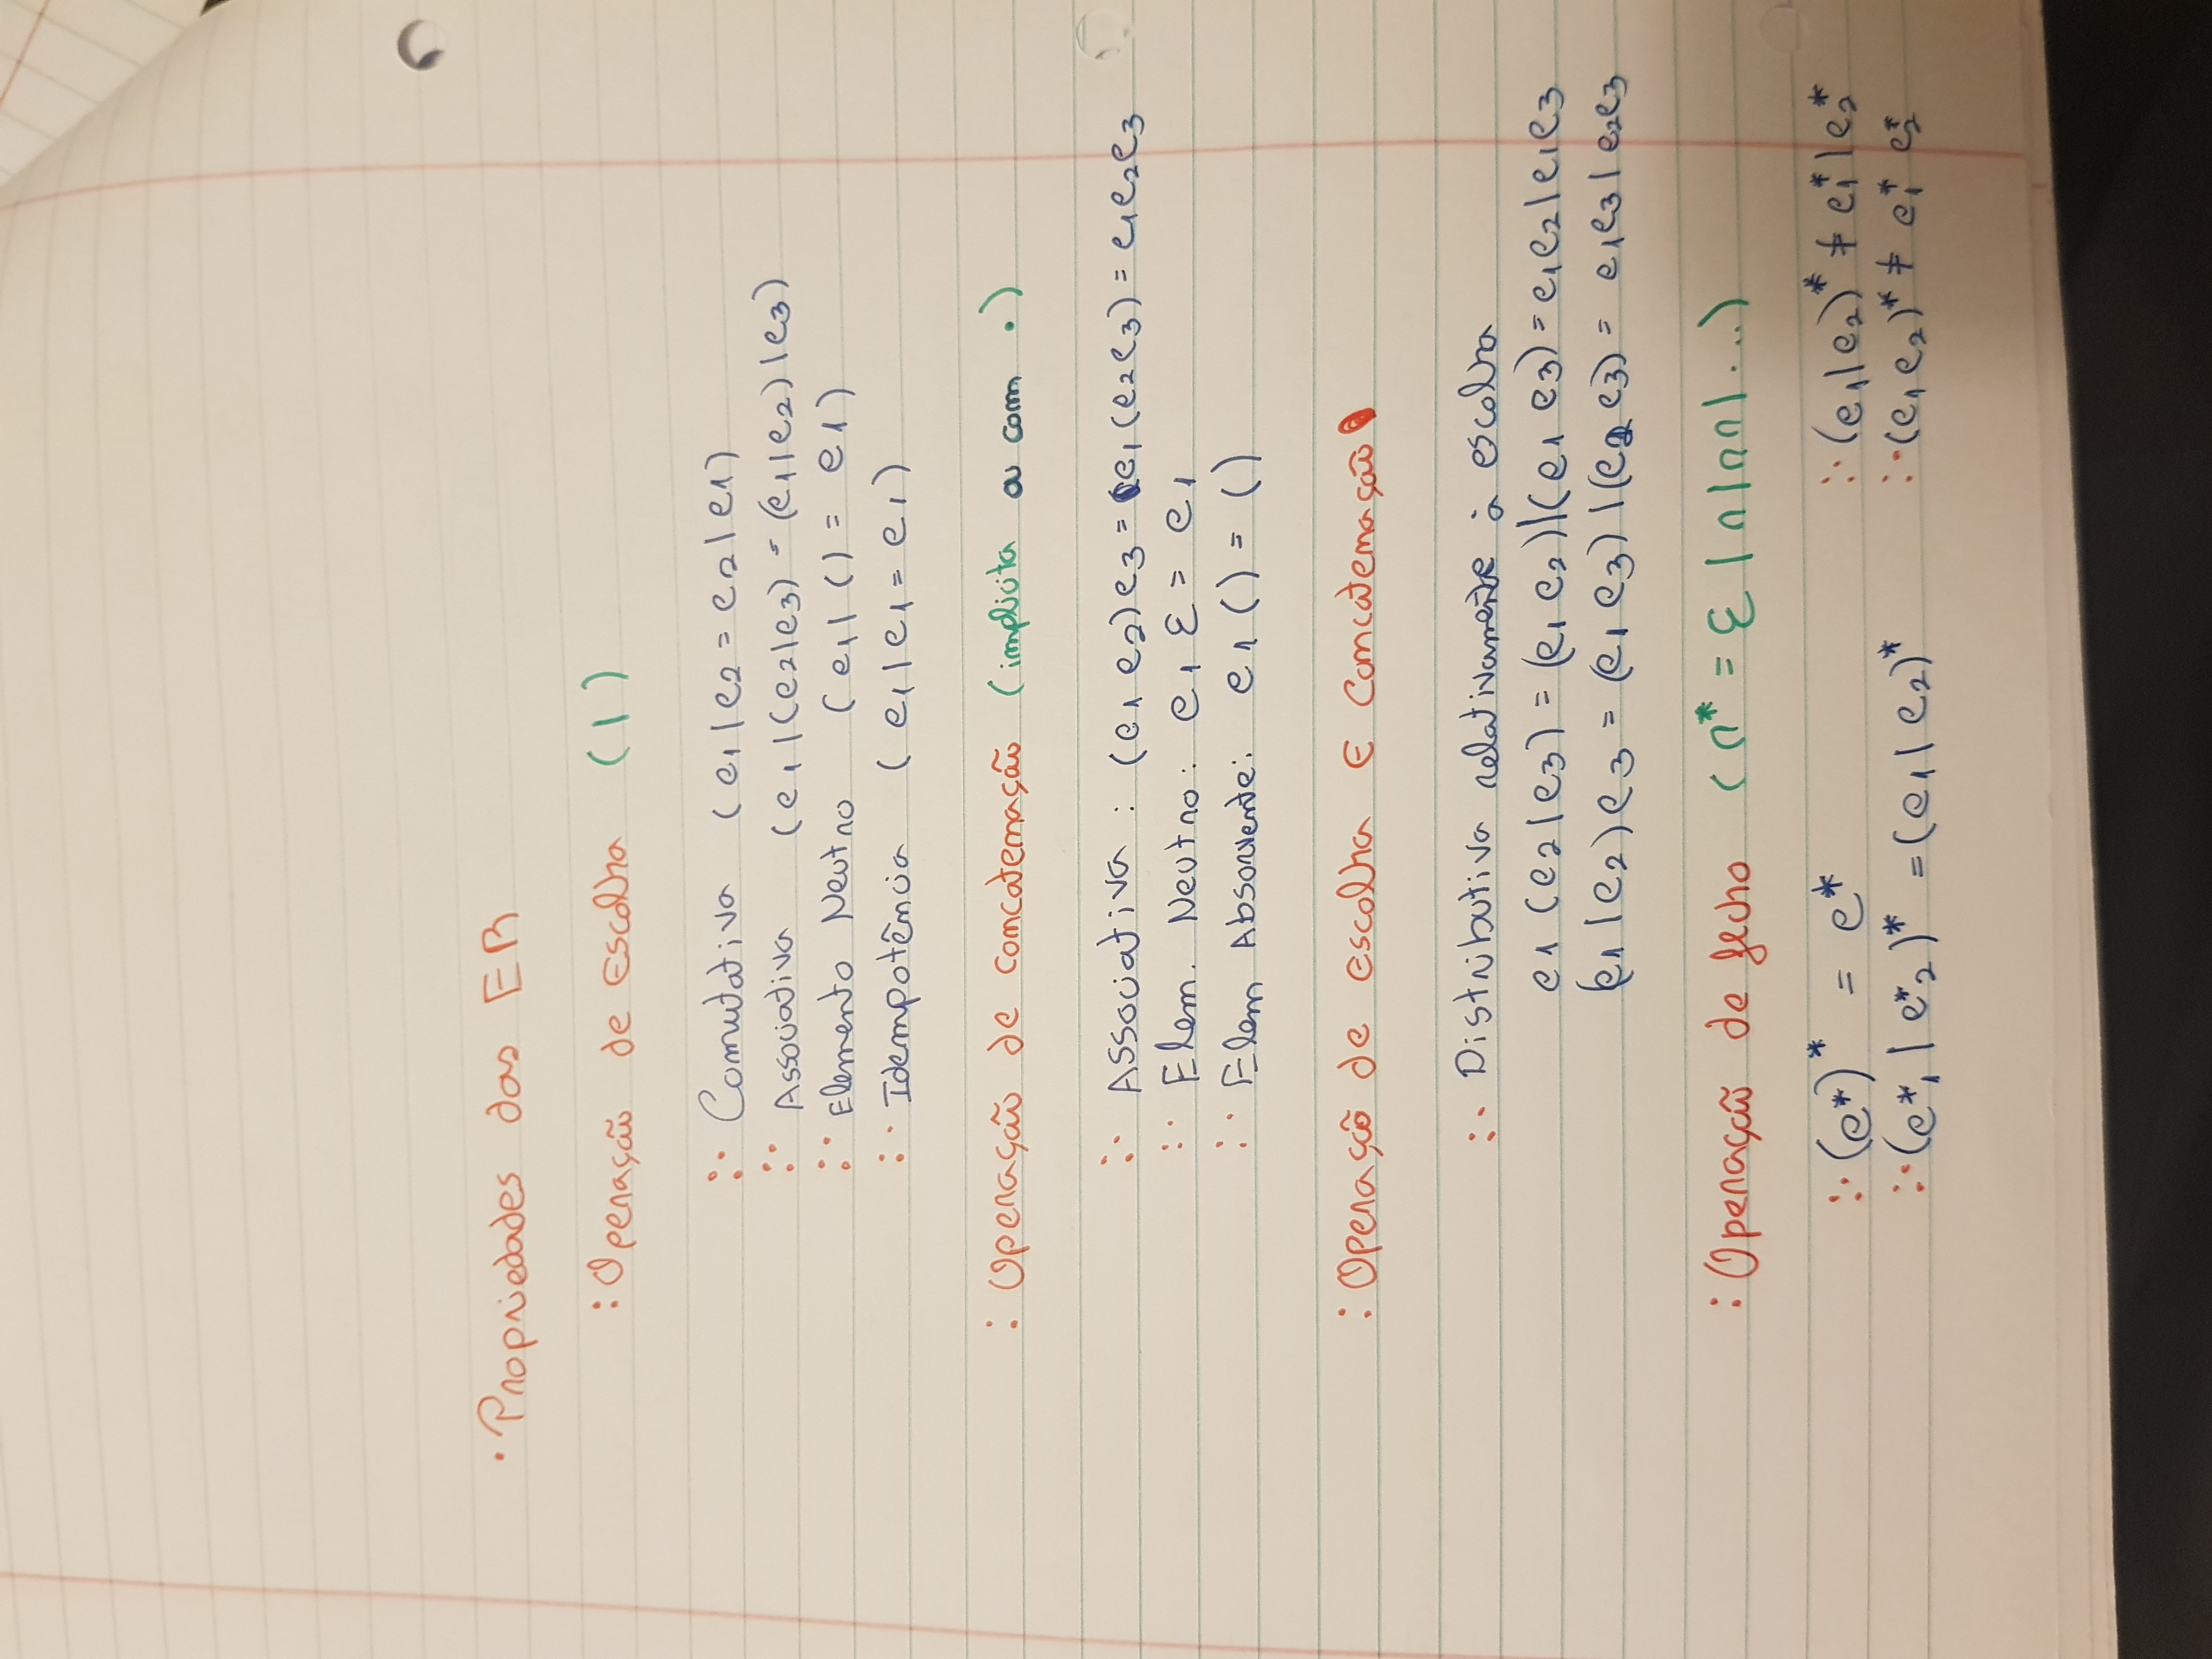 · Propriedades das ER
: Operação de Escolha (|)
∴ Comutativa (e1|e2 = e2|e1)
∴ Associativa (e1|(e2|e3) = (e1|e2)|e3)
∴ Elemento Neutro (e1| () = e1)
∴ Idempotência (e1|e1 = e1)
: Operação de concatenação (implicita ou com •)
∴ Associativa : (e1 e2)e3 = e1(e2e3) = e1e2e3
∴ Elem. Neutro: e1 ε = e1
∴ Elem Absorvente: e1 () = ()
: Operação de escolha E Concatenação
∴ Distributiva relativamente à escolha
e1 (e2|e3) = (e1 e2)|(e1 e3) = e1e2|e1e3
(e1|e2)e3 = (e1 e3)|(e2 e3) = e1e3|e2e3
: Operação de fecho (r* = ε | r | rr | ...)
∴ (e*)* = e* ∴ (e1|e2)* ≠ e1*|e2*
∴ (e*1 | e*2)* = (e1 | e2)* ∴ (e1e2)* ≠ e1* e2*